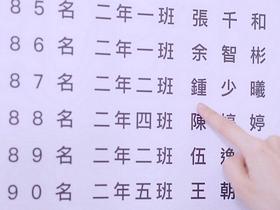 85名 二年一班 張千和
86名 二年一班 余智彬
87名 二年二班 鍾少曦
88名 二年四班 陳婷婷
89名 二年二班 伍逸
90名 二年五班 王朝